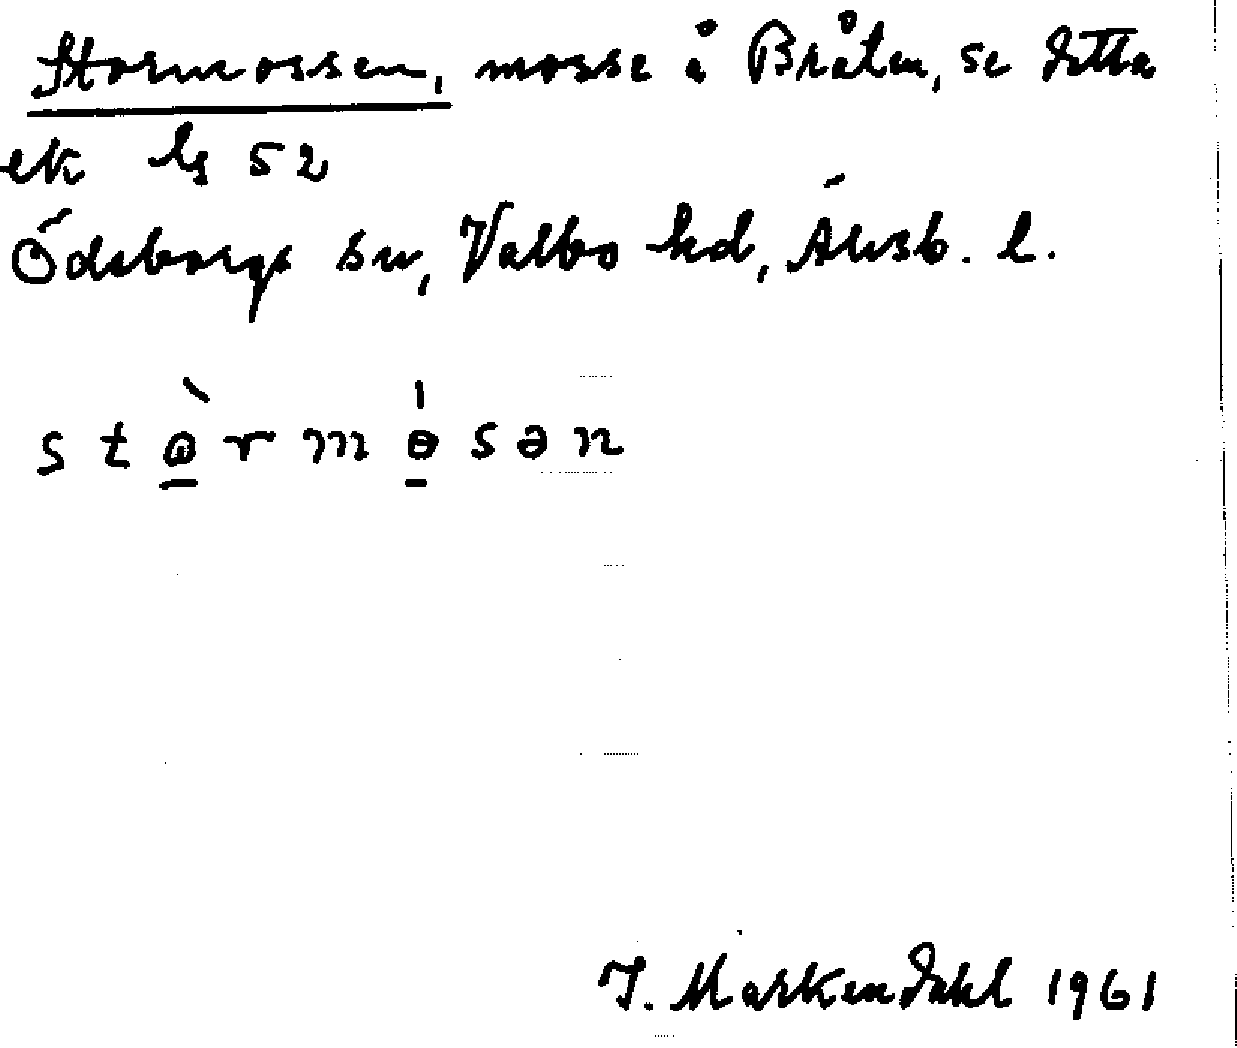 Stormossen, mosse å Bråten, se detta
ek ls 52
Ödeborgs sn, Valbo hd, Älvsb. l.
stòrmɵ́sən
J. Markendahl 1961